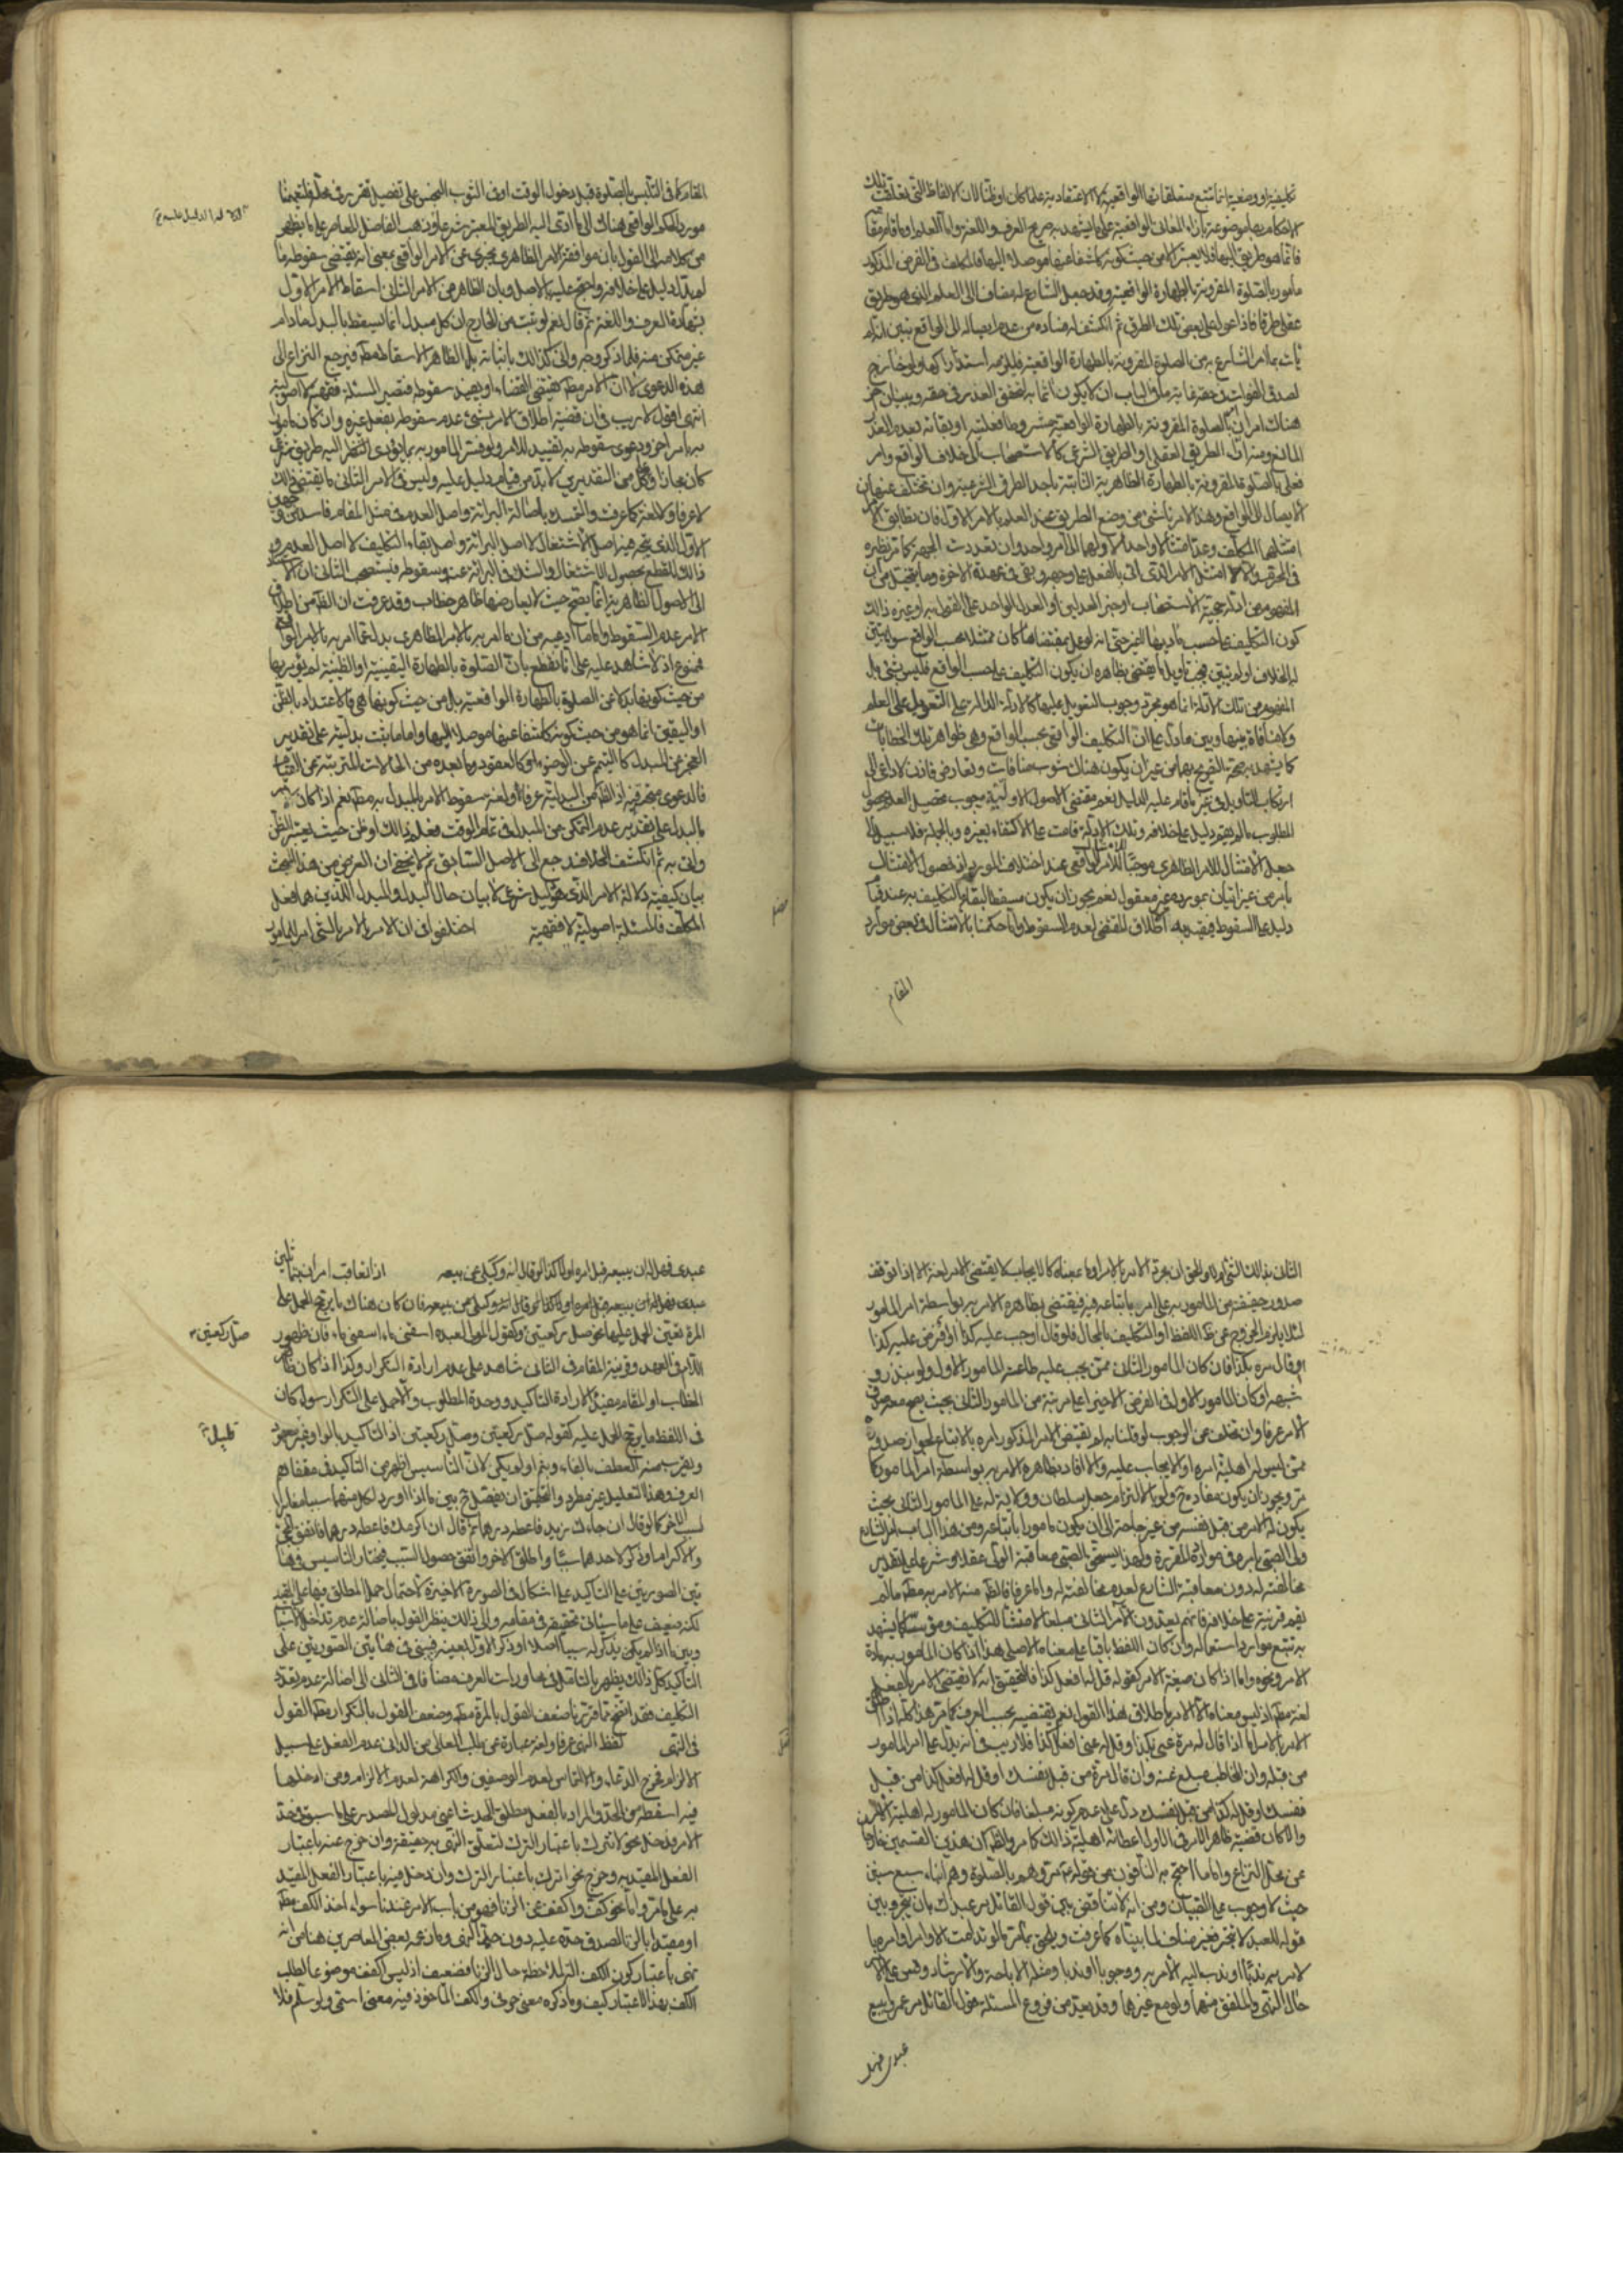 تكليفية او وضعية انما تتبع متعلقاتها الواقعية لا الاعتقادية علما كان او ظنا لان الالفاظ التي تعلقت تلك
الاحكام بها موضوعة بازاء المعاني الواقعية على ما يشهد به صريح العرف واللغة واما العلم او ما قام مقامه
فانما هو طريق اليها فلا يعتبر الا من حيث كونه كاشفا عنها موصلا اليها فالمكلف في الفرض المذكور
مأمور بالصلوة المقرونة بالطهارة الواقعية وقد جعل الشارع له مضافا الى العلم الذي هو طريق
عقلي طرقا فاذا عول على بعض تلك الطرق ثم انكشف له فساده من عدم ايصاله الى الواقع تبين انه لم
يأت بما امر الشارع به من الصلوة المقرونة بالطهارة الواقعية فيلزمه استدراكها ولو خارج
لصدق الفوات في حقه غاية ما في الباب ان لا يكون آثما به لتحقق العذر في حقه وببيان آخر
هناك امران امر بالصلوة المقرونة بالطهارة الواقعية مشروط بفعليته او بقائه بعدم العذر
المانع ومنه اداء الطريق العقلي او الطريق الشرعي كالاستصحاب الى خلاف الواقع وامر
فعلي بالصلوة المقرونة بالطهارة الظاهرية الثابتة باحد الطرق الشرعية وان تختلف عنها في
الايصال الى الواقع وهذا الامر ناشئ من وضع الطريق بمنزلة العلم بالامر الاول فان تطابق الامران
امتثلهما المكلف وعد امتثالا واحدا لاولهما الى امر واحد وان تعددت الجهة كما مر نظيره
كون التكليف على حسب مؤديها الغير حتى انه لو عمل بمقتضاها كان ممتثلا بحسب الواقع سواء تبين
له الخلاف او لم يتبين يجب تأويل ما يقتضي بظاهره ان يكون التكليف على حسب الواقع فليس بشئ بل
المفهوم من تلك الادلة انما هو مجرد وجوب التعويل عليها كالادلة الدالة على التعويل على العلم
ولا منافاة بينها وبين ما دل على ان التكليف الواقعي بحسب الواقع وهي ظواهر تلك الخطابات
كما يشهد به صحة التصريح بهما من غير ان يكون هناك شوب منافات وتعارض فاذن لا داعي الى
ارتكاب التأويل في غير ما قام عليه الدليل نعم مقتضى الاصول الاولية وجوب تحصيل العلم بحصول
المطلوب ما لم يقم دليل على خلافه وتلك الادلة قامت على الاكتفاء بغيره وبالجملة فلا سبيل الى
جعل الامتثال للامر الظاهري موجبا لامتثال الامر الواقعي عند اختلاف المورد اذ حصول الامتثال
بامر من غير اتيان بمورده غير معقول نعم يجوز ان يكون مسقطا لبقاء التكليف به عند قيام
دليل على السقوط فيقيد به اطلاق المقتضي لعدم السقوط وانما حكمنا بالامتثال في بعض موارد
المقام
المقام كما في التلبس بالصلوة قبل دخول الوقت او في الثوب النجس على تفصيل تقرير في محله لتعميمنا
مورد الحكم الواقعي هناك الى ما ادى اليه الطريق المعتبر شرعا وذهب الفاضل المعاصر على ما يظهر
من كلامه الى القول بان موافقة الامر الظاهري تجزي عن الامر الواقعي بمعنى انه يقتضي سقوطه ما
لم يدل دليل على خلافه واحتج عليه بالاصل وبان الظاهر من الامر الثاني اسقاط الامر الاول
بشهادة العرف واللغة ثم قال نعم لو ثبت من الخارج ان كل مبدل انما يسقط بالبدل ما دام
غير متمكن منه فلما ذكر وجه وانى كذلك باثباته بل الظاهر الاسقاط مطلقا فيرجع النزاع الى
هذه الدعوى لا ان الامر مطلقا يقتضي القضاء او يفيد سقوطه فتصير المسئلة فقهية لا اصولية
انتهى اقول لا ريب في ان قضية اطلاق الامر بشئ عدم سقوطه بفعل غيره وان كان مأمورا
به بامر آخر ودعوى سقوطه به تقييد للامر ولو فسر المأمور به بما يؤدي النظر اليه طريق شرعي
كان مجازا وكل من التقديرين لا بد من قيام دليل عليه وليس في الامر الثاني ما يقتضي ذلك
لا عرفا ولا لغة كما عرفت والتمسك بأصالة البرائة واصل العدم في مثل المقام فاسد من وجهين
الاول الذي يتجه هنا اصل الاشتغال لا اصل البرائة واصل بقاء التكليف لا اصل العدم
ذلك للقطع بحصول الاشتغال والشك في البرائة عنه وسقوطه فيستصحب الثاني ان الاستناد
الى الاصول الظاهرية انما يصح حيث لا يعارضها ظاهر خطاب وقد عرفت ان الظاهر من اطلاق
الامر عدم السقوط واما ما ادعيه من ان ما امر به بالامر الظاهري بدل عما امر به بالامر الواقعي
فممنوع اذ لا شاهد عليه على انا نقطع بان الصلوة بالطهارة اليقينية او الظنية لم يؤمر بها
من حيث كونها بدلا عن الصلوة بالطهارة الواقعية بل من حيث كونها هي فالاعتداد بالظن
او اليقين انما هو من حيث كونه كاشفا عنها موصلا اليها واما ما يثبت بدليته على تقدير
العجز عن المبدل كالتيمم عن الوضوء وكالقعود وما بعده من الحالات المترتبة عن القيام
فالدعوى متجه فيه اذ الظاهر من البدلية عرفا ولغة سقوط الامر بالمبدل به مطلقا نعم اذا كان
بالبدل على تقدير عدم التمكن من المبدل في تمام الوقت فعلم ذلك او ظن حيث يعتبر الظن
واتى به ثم انكشف الخلاف رجع الى الاصل السابق ثم لا يخفى ان الغرض من هذا البحث
بيان كيفية دلالة الامر الذي هو دليل شرعي لا بيان حال البدل والمبدل الذين هما فعل
المكلف فالمسئلة اصولية لا فقهية اختلفوا في ان الامر بالامر بالشئ امر للمأمور
الثاني بذلك الشئ او لا والحق ان مجرد الامر بالامر او ما بمعناه كالايجاب لا يقتضي الامر لغة الا اذا توقف
صدور حقيقة من المأمور به على امره باتباعه فيه فيقتضي بظاهره الامر به بواسطة امر المأمور
لئلا يلزم الخروج عن ظاهر اللفظ او التكليف بالمحال فلو قال اوجب عليه كذا او افرض عليه كذا
او قال مره بكذا فان كان المأمور الثاني ممن يجب عليه طاعة المأمور الاول ولو بنذر و
شبهه او كان المأمور الاول في الفرض الاخير اعلى مرتبة من المأمور الثاني بحيث يصح معه صدق
الامر عرفا وان تختلف عن الوجوب لو قلنا به لم يقتضي الامر المذكور امره بالاتباع لجواز صدوره
ممن ليس له اهلية امره او الايجاب عليه والا افاد بظاهره الامر به بواسطة امر المأمور كما
مر ويجوز ان يكون مفاده ولو بالالتزام جعل سلطان وولاية له على المأمور الثاني بحيث
يكون له الامر من قبل نفسه من غير حاجة الى ان يكون مأمورا باتباعه ومن هذا الباب امر الشارع
ولي الصبي بامره في موارده المقررة ولهذا يستحق الصبي معاقبة الولي عقلا وشرعا على تقدير
مخالفته له دون معاقبة الشارع لعدم مخالفته له واما عرفا فالظاهر منه الامر به مطلقا ما لم
يقم قرينة على خلافه فانهم يعدون الآمر الثاني مبلغا لا منشأ للتكليف ومؤسسا كما يشهد
به تتبع موارد استعماله وان كان اللفظ باقيا على معناه الاصلي هذا اذا كان المأمور به مادة
الامر ونحوه واما اذا كان صيغة الامر كقوله قل له افعل كذا فالتحقيق انه لا يقتضي الامر بالفعل
لغة مطلقا اذ ليس معناه الا الامر باطلاق هذا القول نعم يقتضيه بحسب العرف كما مر هذا كله اذا اطلق
الامر بالامر اما اذا قال له مره عني بكذا او قل له عني افعل كذا فلا ريب في انه يدل على امر المأمور
من قبله وان المخاطب مبلغ عنه وان قال مره من قبل نفسك او قل له افعل كذا من قبل
نفسك او قل له كذا من قبل نفسك دل على عدم كونه مبلغا فان كان المأمور له اهلية الامر
والا كان قضية ظاهر الامر في الاول اعطائه اهلية ذلك كما مر والظاهر ان هذين القسمين خارجا
عن محل النزاع واما ما احتج به النافون من قوله ع مروهم بالصلوة وهم ابناء سبع سنين
حيث لا وجوب على الصبيان ومن انه لا تناقض بين قول القائل مر عبدك بان يتجر وبين
قوله للعبد لا تتجر فغير مناف لما بيناه كما عرفت ويلحق بما مر ما لو تداعت الاوامر او امره بها
لامر بهم ندبا او ندب اليه الامر به ووجوبا او ندبا ومثله الاباحة والارشاد وقس على الامر
حال النهي والملفق منهما ولو مع غيرها وقد يعد من فروع المسئلة قول القائل مر عمروا ببيع
عبدي فهل
عبدي فهل له ان يبيعه قبل امره او لا كذا لو قال انه وكيلي عن بيعه اذا تعاقب امران بمتماثلين
المرة تعين الحمل عليها نحو صل ركعتين وكقول المولى لعبده اسقني ماء اسقني ماء فان ظهور
صل ركعتين
اللام في العهد وقرينة المقام في الثاني شاهد على عدم ارادة التكرار وكذا اذا كان ظاهر
الخطاب او المقام مفيدا لارادة التاكيد ووحدة المطلوب والا حمل على التكرار سواء كان
في اللفظ ما يرجح الحمل عليه كقوله صل ركعتين وصل ركعتين اذ التاكيد بالواو غير معهود
ويقرب منه العطف بالفاء وبثم او لم يكن لان التأسيس اظهر من التاكيد في مقام
العرف وهذا التعليل غير مطرد والتحقيق ان يفصل بين ما اذا اورد لكل منهما سببا مغايرا
لسبب الاخر كما لو قال ان جاءك زيد فاعطه درهما ثم قال ان اكرمك فاعطه درهما فاتفق المجئ
والاكرام او ذكر لاحدهما سببا واطلق الاخر واتفق حصول السبب فيختار التأسيس في هاتين
الصورتين على التاكيد على اشكال في الصورة الاخيرة لاحتمال حمل المطلق فيها على المقيد
لكنه ضعيف على ما سيأتي تحقيقه في مقامه والى ذلك ينظر القول بأصالة عدم تداخل الاسباب
وبين ما اذا لم يكن يذكر له سببا اصلا او ذكر الاول بعينه فيبنى في هاتين الصورتين على
التاكيد كل ذلك يظهر بالتأمل في محاورات العرف مضافا في الثاني الى اصالة عدم تعدد
التكليف فقد اتضح مما قررنا ضعف القول بالمرة مطلقا وضعف القول بالتكرار مطلقا القول
في النهي لفظ النهي عرفا ولغة عبارة عن طلب العالي من الداني عدم الفعل على سبيل
الالزام فخرج الدعاء والالتماس لعدم الوصفين والكراهة لعدم الالزام ومن ادخلها
فيه اسقطه من الحد والمراد بالفعل مطلق الحدث اعني مدلول المصدر على ما سبق في حد
الامر فدخل نحو لا تترك باعتبار الترك لتعلق النهي به حقيقة وان خرج عنه باعتبار
الفعل المقيد به وخرج نحو اترك باعتبار الترك وان دخل فيه باعتبار الفعل المقيد
به على ما مر واما نحو كف واكفف عن الزنا فهو من باب الامر عندنا سواء اخذ الكف مطلقا
او مقيدا بالزنا لصدق حده عليه دون حد النهي وما زعمه بعض المعاصرين هنا من انه
نهي باعتبار كون الكف آلة لملاحظة حال الزنا فضعيف اذ ليس اكفف موضوعا لطلب
الكف بهذا الاعتبار كيف وما ذكره معنى حرفي والكف المأخوذ فيه معنى اسمي ولو سلم فلا